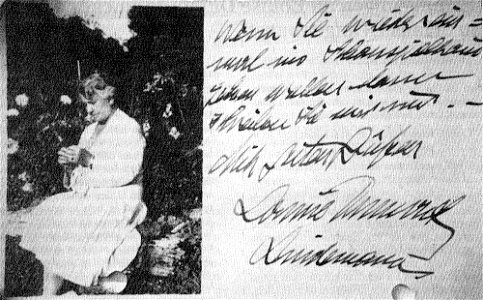 wenn Sie wieder ein=
mal ins Schauspielhaus
gehen wollen dann
schreiben Sie mir nur. –
Mit guten Grüßen
Louise Dumont
Lindemann